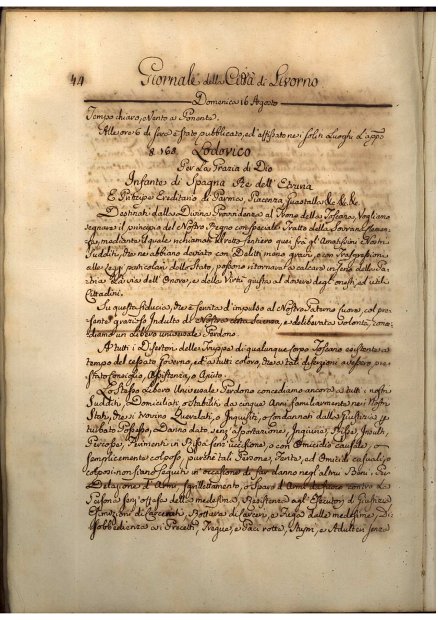 44 Giornale della Città di Livorno
Domenica 16 Agosto
Tempo chiaro, e Vento a Ponente.
Alle ore 6 di sera è stato pubblicato, ed affissato nei soliti Luoghi
Lodovico
Per La Grazia di Dio
Infante di Spagna Re dell' Etruria
E Principe Ereditario di Parma, Piacenza, Guastalla &c &c &c
Destinati dalla Divina Provvidenza al Trono della Toscana, Vogliamo
segnare il principio del Nostro Regno con speciale Tratto della Sovrana Clemen
za, mediante il quale richiamati al retto sentiero quei fra gl' Amatissimi Nostri
Sudditi, che ne abbiano deviato con Delitti meno gravi, o con trasgressioni
alle Leggi particolari dello Stato, possono ritornare a calcare in seno della Pa
tria la via dell' Onore, e della Virtù giusta al dovere degl' onesti, ed utili
Cittadini.
Su questa fiducia, che è servita d' impulso al Nostro Paterno Cuore, col pre
sente grazioso Indulto di Nostra certa scienza, e deliberata Volontà, conce
diamo un Libero universale Perdono
A tutti i Disertori delle Truppe di qualunque Corpo Toscano esistente a
tempo del cessato Governo, ed a tutti coloro, che a tali diserzioni avessero pre
stato Consiglio, Assistenza, o Ajuto.
Lo stesso Libero Universale Perdono concediamo ancora a tutti i nostri
Sudditi Domiciliati o stabiliti da cinque Anni familiarmente nei Nostri
Stati, che si trovino Querelati, o Inquisiti, o condannati dalla Giustizia per
turbato Possesso, Danno dato senz' asportazione, Ingiurie, Risse, Insulti,
Percosse, Ferimenti in Rissa senz' uccisione, o con Omicidio casuale, o
semplicemente colposo, purchè tali Percosse, Ferite, ed Omicidi casuali, o
colposi non siano seguiti in occasione di far danno negl' altrui Beni. Per
Delazione d' Armi, o Sparo d' Armi da fuoco contro la
Persona senz' offesa della medesima, Resistenza agl' Esecutori di Giustizia
Esenzioni di Carcerati, Rottura di Carceri, e Fuga dalle medesime, Di
sobbedienza ai Precetti, Tregue, e Paci rotte, Stupri, e Adulteri senza